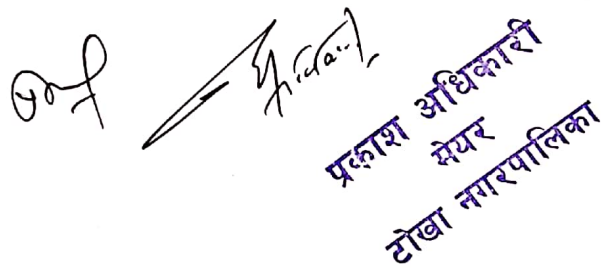 प्रकाश अधिकारी
मेयर
टोखा नगरपालिका